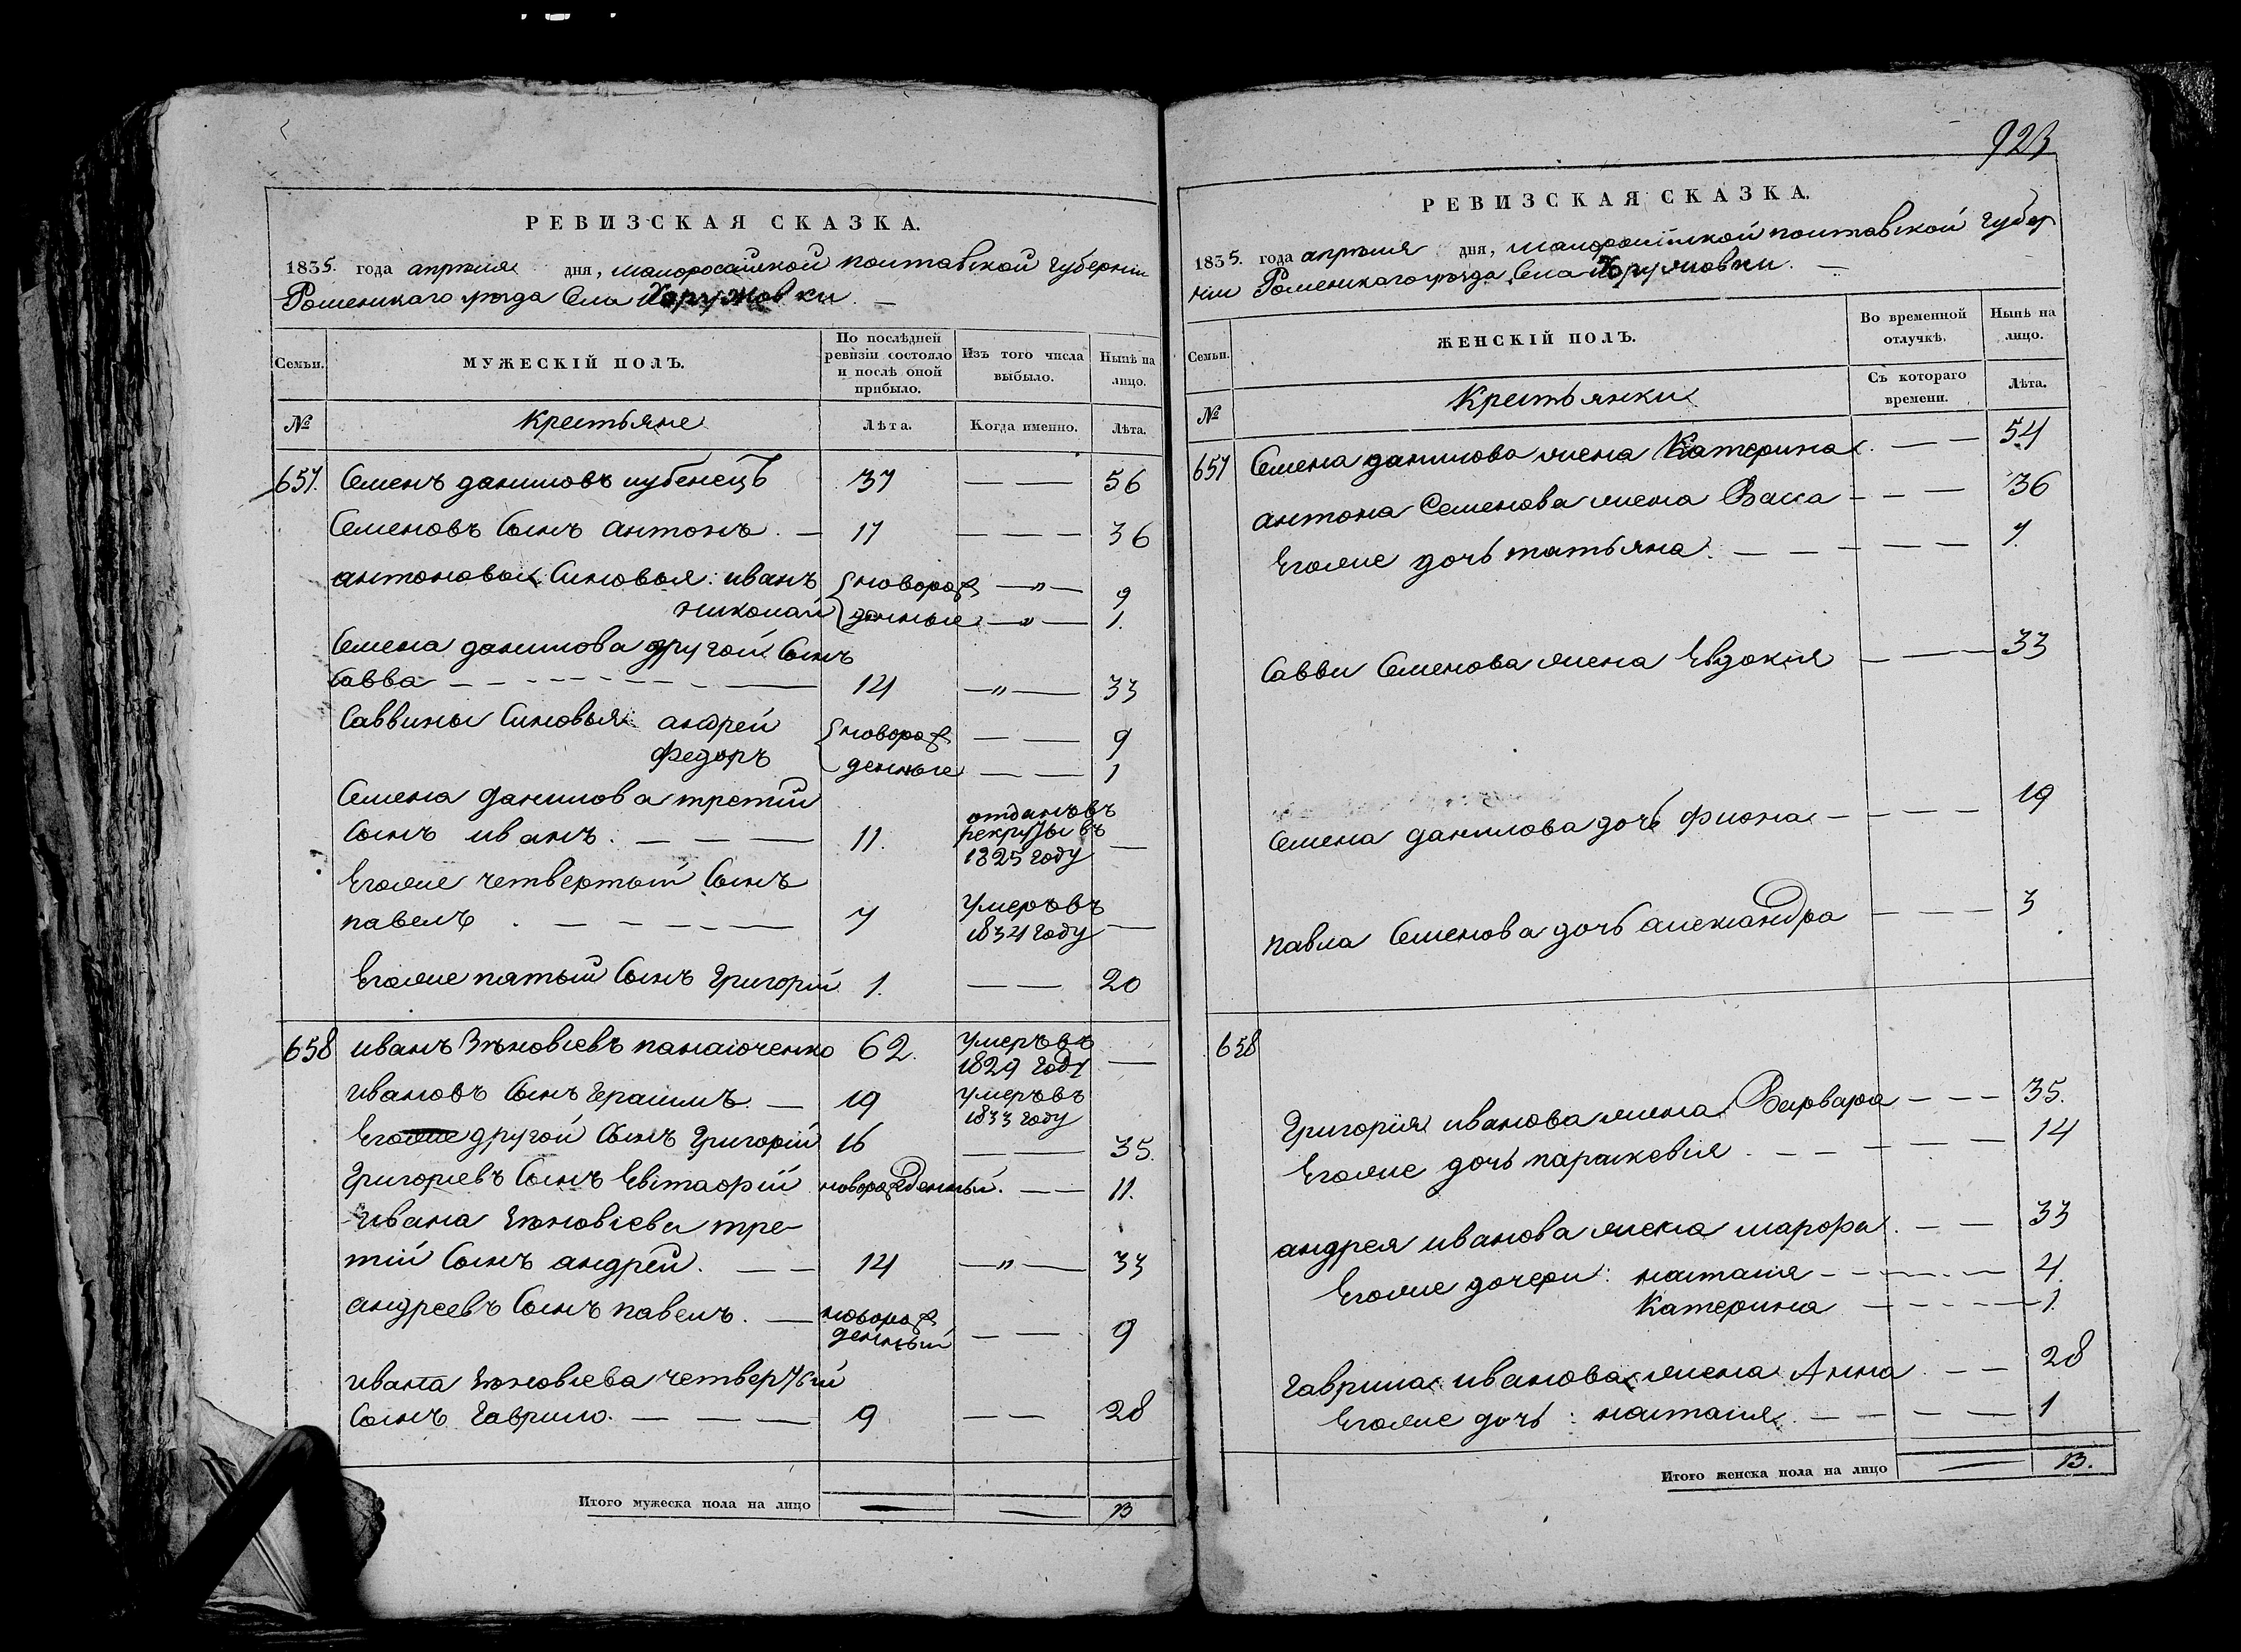 923
РЕВИЗСКАЯ СКАЗКА.
1835. года апрѣля дня, малороссійской полтавской губерніи
Роменскаго уѣзда Села Харужовки. —
Семьи. МУЖЕСКІЙ ПОЛЪ. По послѣдней ревизіи состояло и послѣ оной прибыло. Изъ того числа выбыло. Нынѣ на лицо.
№ Крестьяне Лѣта. Когда именно. Лѣта.
657. Семенъ даниловъ лубенецъ 37 — — 56
Семеновъ Сынъ антонъ. — 17 — — — 36
антоновы Синовья: иванъ новорож — „ — 9
николай денные — „ — 1.
Семена данилова другой Сынъ
Савва — — — 14 — „ — 33
Саввины Синовья андрей новорож — — 9
федоръ денные — — 1
Семена данилова третій
Сынъ иванъ. — — — 11. отданъ въ рекруты въ 1825 году —
Егоже четвертый Сынъ
павелъ . — — — — 7 умеръ въ 1834 году —
Егоже пятый Сынъ Григорій 1. — — 20
658 иванъ Зѣновіевъ панасюченко 62. умеръ въ 1829 году —
ивановъ Сынъ Герасимъ. — 19 умеръ въ 1833 году
Егоже другой Сынъ Григорій 16 — — 35.
Григоріевъ Сынъ Евстафій новорожденный. — — 11.
Ивана Зѣновіева тре-
тій Сынъ андрей. — — 14 — „ — 33
андреевъ Сынъ павелъ. — новорож денный — — 9
ивана Зѣновіева четвертый
Сынъ Гаврило. — — — 9 — — 28
Итого мужеска пола на лицо — — 13
РЕВИЗСКАЯ СКАЗКА.
1835. года апрѣля дня, малоросійской полтавской губер
ніи Роменскаго уѣзда Села Харужовки. —
Семьи. ЖЕНСКІЙ ПОЛЪ. Во временной отлучкѣ. Нынѣ на лицо.
№ Крестьянки Съ котораго времени. Лѣта.
657 Семена данилова жена Катерина. — — 54
антона Семенова жена Васса — — — 36
Егоже дочь татьяна. — — — — — 7.
Савви Семенова жена Евдокия — — — 33
Семена данилова дочь фиона — — — — 19
павла Семенова дочь александра — — — 3
658
Григорія иванова жена Варвара — — — 35.
Егоже дочь параскевія . — — — — — 14
андрея иванова жена марфа. — — 33
Егоже дочери: настасія — — — — — 4.
Катерина — — — — — 1.
Гаврила иванова жена Анна . — — 28
Егоже дочь: настасія. — — — — 1
Итого женска пола на лицо — 13.